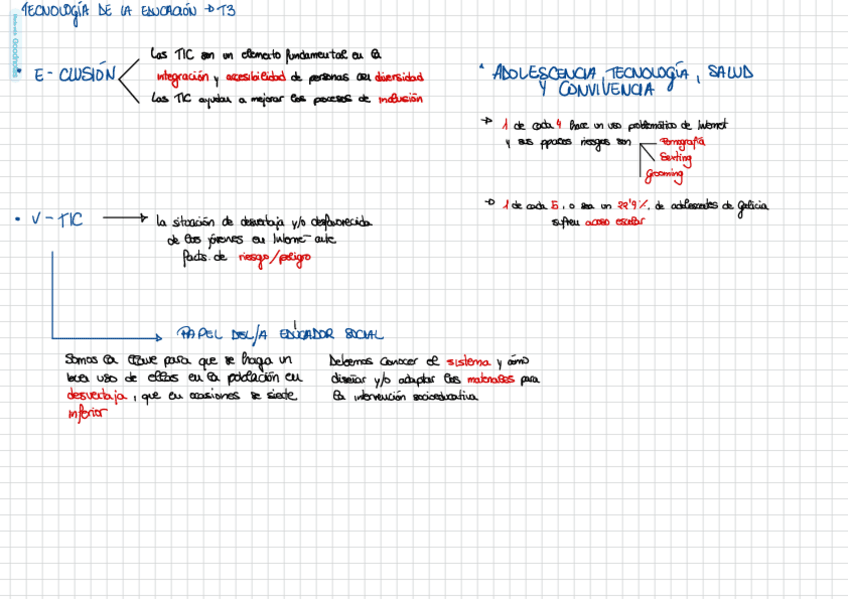 TECNOLOGÍA DE LA EDUCACIÓN → T3
• E-CLUSIÓN
Las TIC son un elemento fundamental en la
integración y accesibilidad de personas con diversidad
Las TIC ayudan a mejorar los procesos de inclusión
• V-TIC → la situación de desventaja y/o desfavorecida
de los jóvenes en Internet ante
facts. de riesgo/peligro
PAPEL DEL/A EDUCADOR SOCIAL
Somos la clave para que se haga un
buen uso de ellas en la población en
desventaja, que en ocasiones se siente
inferior
Debemos conocer el sistema y cómo
diseñar y/o adaptar los materiales para
la intervención socioeducativa
* ADOLESCENCIA, TECNOLOGÍA, SALUD
Y CONVIVENCIA
→ 1 de cada 4 hace un uso problemático de Internet
y sus ppales riesgos son
Pornografía
Sexting
Grooming
→ 1 de cada 5, o sea un 22'9%, de adolescentes de Galicia
sufren acoso escolar
Goodnotes